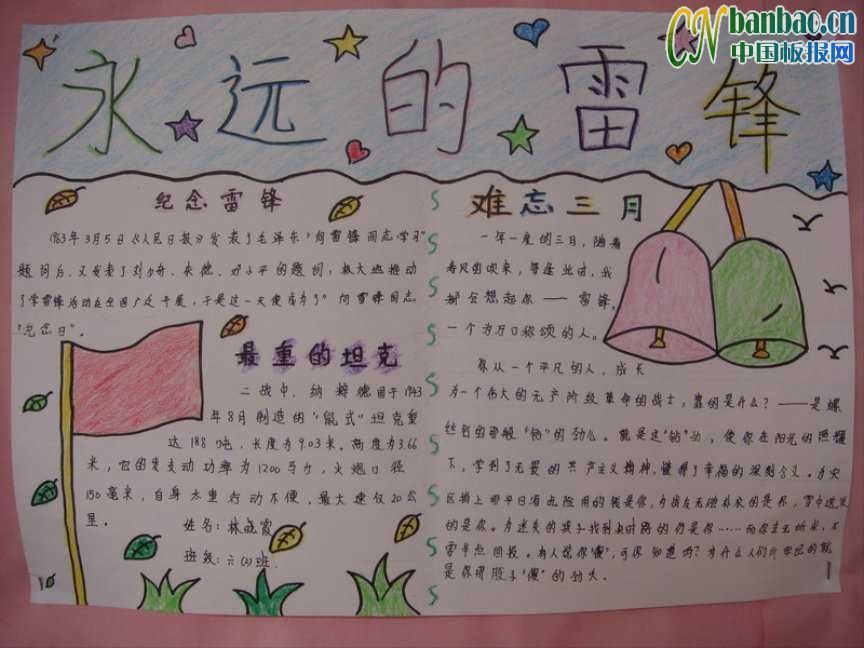 CN banbao.cn
中国板报网
永远的雷锋
纪念雷锋
1963年3月5日《人民日报》发表了毛泽东"向雷锋同志学习"
题词后，又发表了刘少奇、朱德、邓小平的题词，极大地推动
了学雷锋活动在全国广泛开展，于是这一天便成为了"向雷锋同志
"纪念日"。
最重的坦克
二战中，纳粹德国于1943
年8月制造的"鼠式"坦克重
达188吨，长度为9.03米。高度为3.66
米，它的发动功率为1200马力，火炮口径
150毫米，自身太重行动不便，最大速仅20公
里。
姓名：林晓霞
班级：六(2)班
难忘三月
一年一度的三月，随着
春风的吹来，每逢此时，我
都会想起你——雷锋，
一个为万口称颂的人。
你从一个平凡的人，成长
为一个伟大的无产阶级革命的战士，靠的是什么？——是螺
丝钉的那般"钻"的劲儿。就是这"钻"劲，使你在阳光的照耀
下，学到了无畏的共产主义精神，懂得了幸福的深刻含义。为灾
区捐上那平日省点险用的钱是你，为战友无端补来的是你，雪中送炭
的是你。为迷失的孩子找到的仍是你……而你去无
回报。有人说你"傻"，可你知道吗？为什么人们
是你那股子"傻"的劲头。